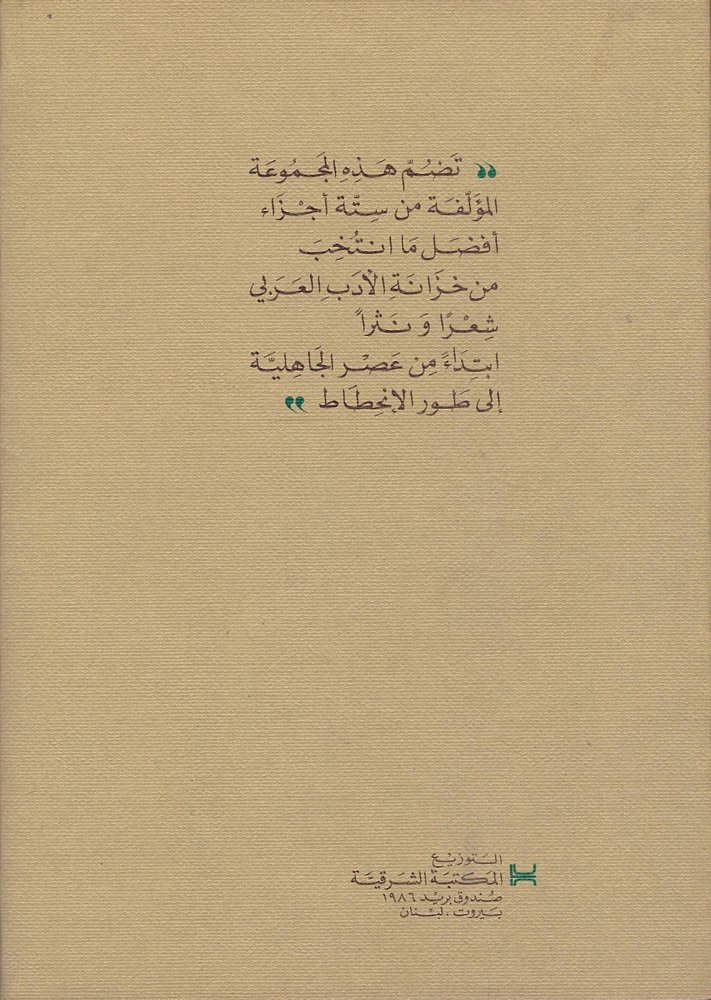 ❝ تَضُمّ هَذِهِ المَجمُوعَة
المؤلّفَة من سِتّة أجْزَاء
أفضَل مَا انتُخِبَ
من خزَانَةِ الأدَبِ العَرَبي
شِعْرًا وَ نَثراً
ابتِدَاءً مِن عَصْر الجَاهِليَّة
إلى طَور الإنحِطَاط ❞
التوزيْع
المكتبَة الشرقيَّة
صُندوق بريْد ١٩٨٦
بَيروت ، لبْنان